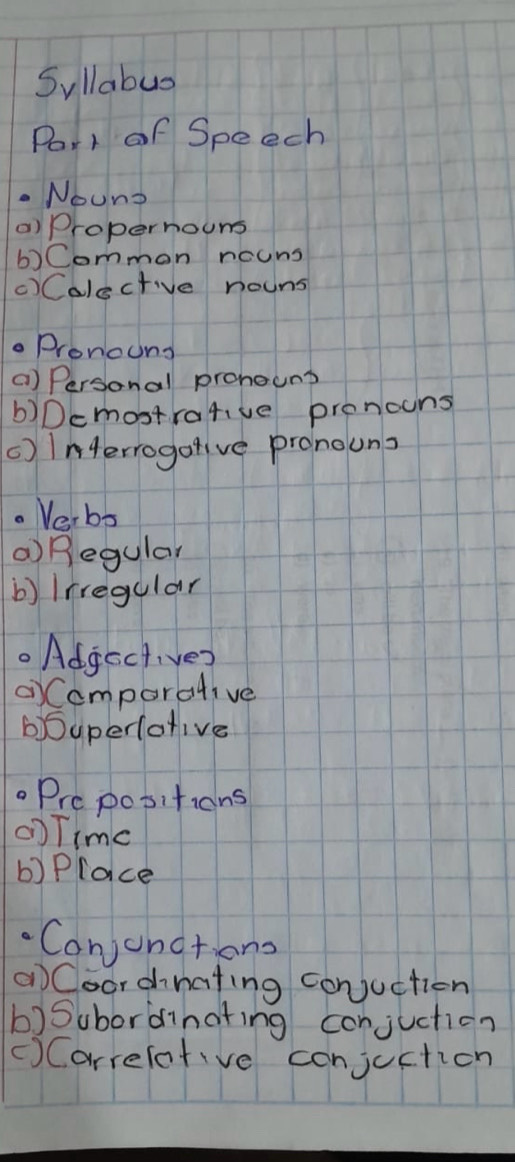 Syllabus
Part of Speech
• Nouns
a) Proper nouns
b) Common nouns
c) Calective nouns
• Pronouns
a) Personal pronouns
b) Demostrative pronouns
c) Interrogative pronouns
• Verbs
a) Regular
b) Irregular
• Adgectives
a) Comparative
b) Superlative
• Prepositions
a) Time
b) Place
• Conjunctions
a) Coordinating conjuction
b) Subordinating conjuction
c) Correlative conjuction